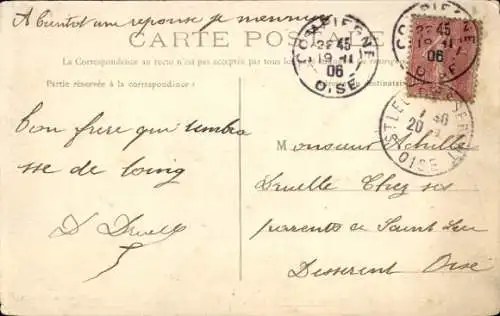 A bientot une reponse je
CARTE POSTALE
La Correspondance au recto n'est pas acceptée par tous les
Partie réservée à la correspondance
COMPIEGNE
45
19 - 11
06
OISE
COMPIEGNE
45
19 - 11
06
OISE
ST LEU
20
OISE
ton frere qui tembra
sse de loing
D Druelle
Monsieur Achille
Druelle Chez ses
parents de Saint Leu
Desserent Oise